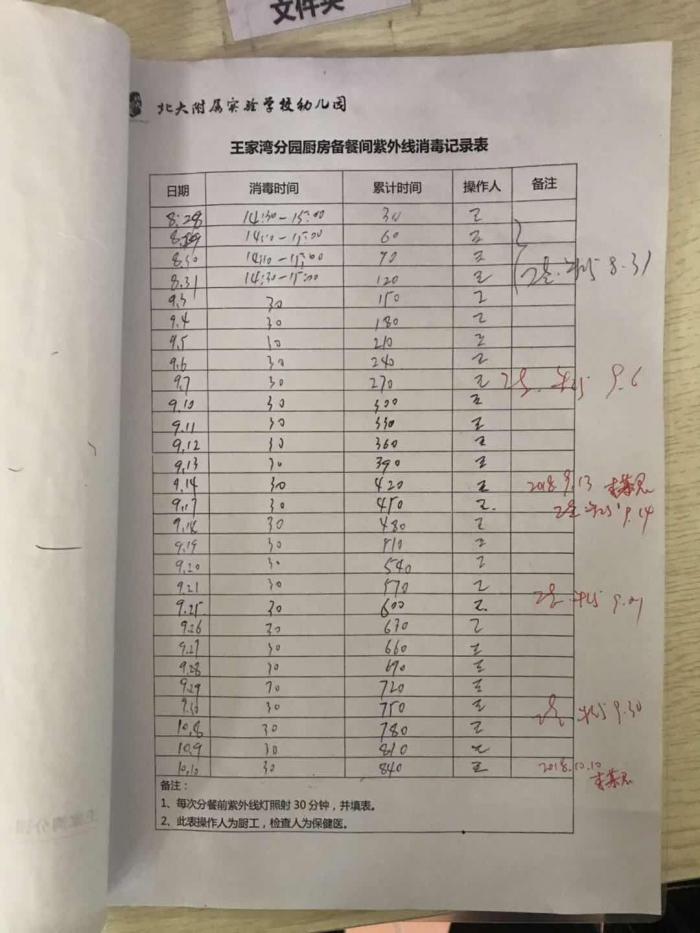 文件夹
北大附属实验学校幼儿园
王家湾分园厨房备餐间紫外线消毒记录表
日期 消毒时间 累计时间 操作人 备注
8.28 14:30-15:00 30
8.29 60
8.30 90
8.31 14:30-15:00 120 8.31
9.3 30 150
9.4 30 180
9.5 30 210
9.6 30 240
9.7 30 270 9.6
9.10 30 300
9.11 30 330
9.12 30 360
9.13 30 390
9.14 30 420 2018.9.13
9.17 30 450 9.14
9.18 30 480
9.19 30 510
9.20 30 540
9.21 30 570
9.25 30 600 9.21
9.26 30 630
9.27 30 660
9.28 30 690
9.29 30 720
9.30 30 750 9.30
10.8 30 780
10.9 30 810
10.10 30 840 2018.10.10
备注：
1、每次分餐前紫外线灯照射30分钟，并填表。
2、此表操作人为厨工，检查人为保健医。